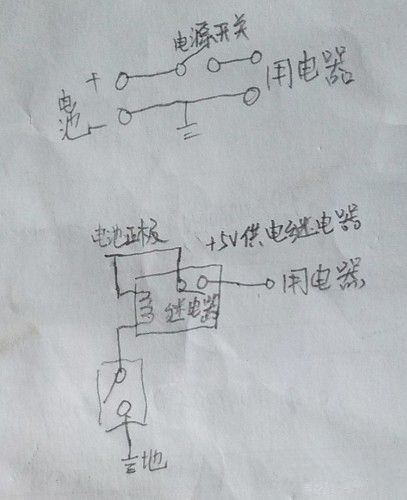 电源开关
+
用电器
电池
-
电池正极
+5V供电继电器
用电器
继电器
地